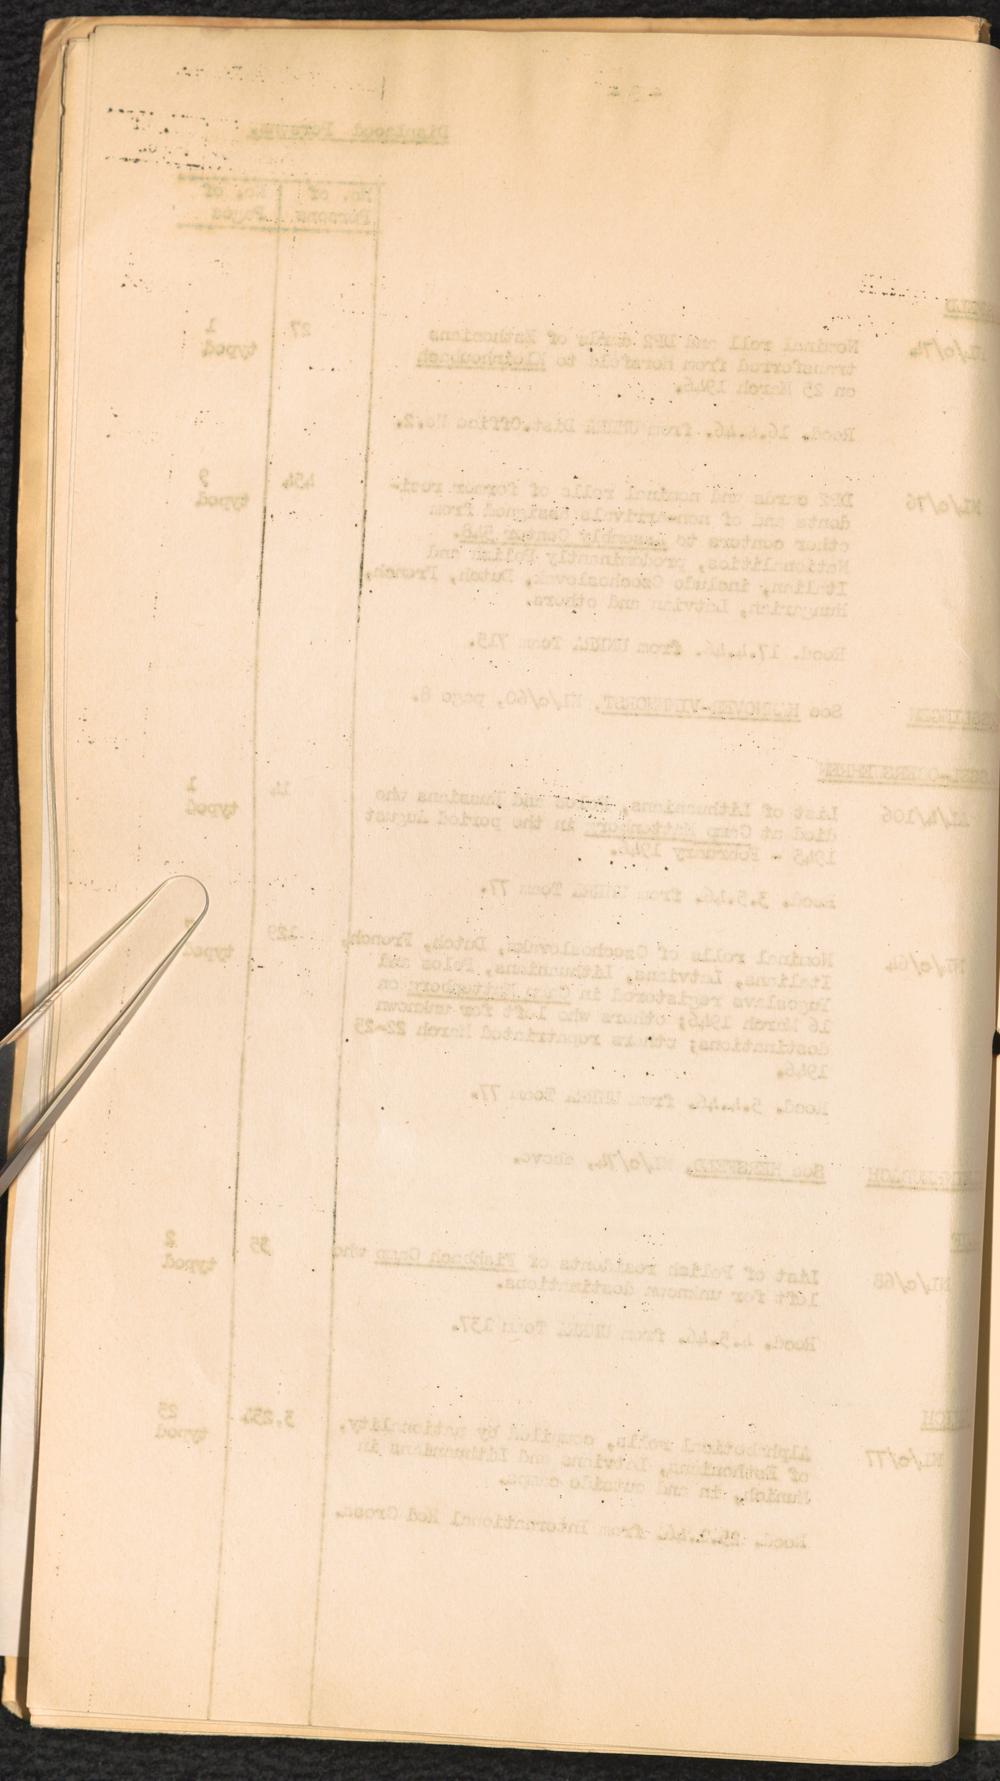 Displaced Persons.
No. of Persons
No. of Pages
NI/c/74.
Nominal roll and DP2 cards of Esthonians
transferred from Hersfeld to
on 25 March 1946.
27
1 typed
Recd. 16.4.46. from UNRRA Dist.Office No.2.
NI/c/76
DP2 cards and nominal rolls of former resi-
dents and of non-arrivals assigned from
other centers to Assembly Center 548.
Nationalities, predominantly Polish and
Italian, include Czechoslovak, Dutch, French,
Hungarian, Latvian and others.
454
9 typed
Recd. 17.4.46. from UNRRA Team 715.
See HANNOVER-VINNHORST, NI/c/60, page 8.
List of Lithuanians, Poles and Russians who
died at Camp Mattenberg in the period August
1945 - February 1946.
14
1 typed
Recd. 3.5.46. from UNRRA Team 77.
NI/c/64
Nominal rolls of Czechoslovaks, Dutch, French,
Italians, Latvians, Lithuanians, Poles and
Yugoslavs registered in Camp Mattenberg on
16 March 1946; others who left for unknown
destinations; others repatriated March 22-25
1946.
129
typed
Recd. 5.4.46. from UNRRA Team 77.
See HERSFELD, NI/c/74, above.
NI/c/68
List of Polish residents of Fishbach Camp who
left for unknown destinations.
35
2 typed
Recd. 4.5.46. from UNRRA Team 137.
NI/c/77
Alphabetical rolls, compiled by nationality,
of Esthonians, Latvians and Lithuanians in
Munich, in and outside camps.
3,254
25 typed
from International Red Cross.